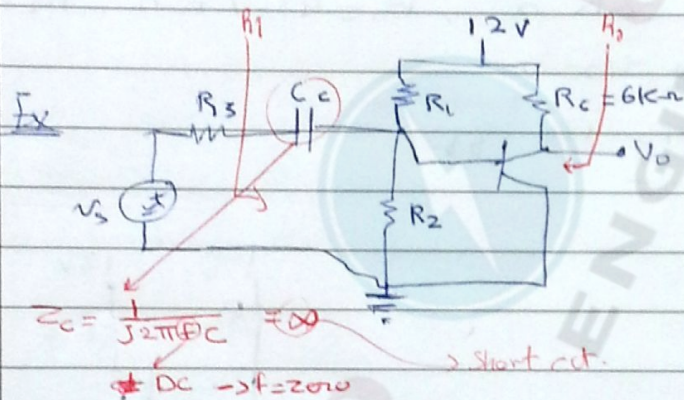 R1 12V Ro
Ex Rs Cc R1 Rc = 6kΩ
Vo
Vs R2
Zc = 1 / J2πfC = ∞
→ Short cct.
DC → f = zero
ENGI